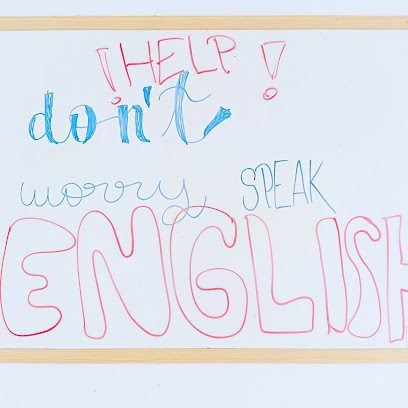 ¡HELP!
don't
worry SPEAK
ENGLISH